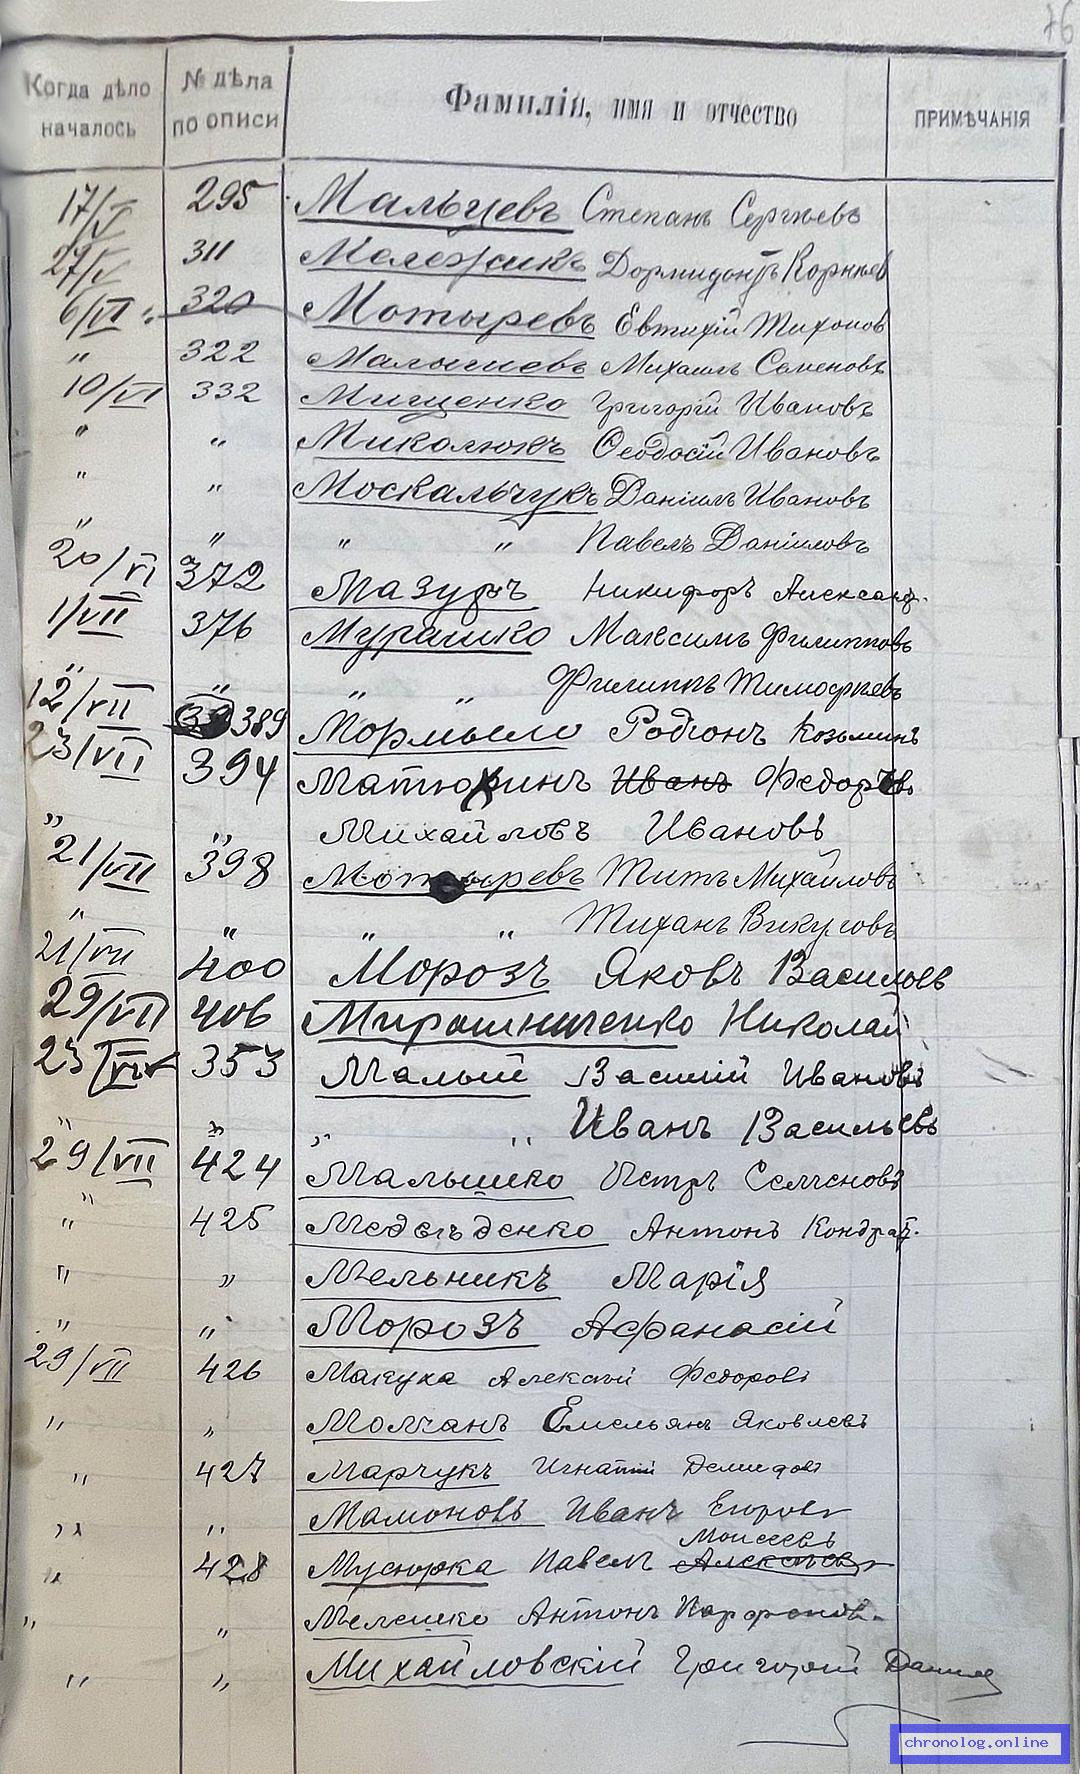 76
Когда дѣло началось № дѣла по описи Фамилія, имя и отчество ПРИМѢЧАНІЯ
17/V 295 Мальцевъ Степанъ Сергѣевъ
27/V 311 Дормидонтъ Корнѣев
6/VI 320 Мотыревъ Евтихій Тихонов
" 322 Малышевъ Михаилъ Семеновъ
10/VI 332 Мищенко Григорій Ивановъ
" " Миколюкъ Ѳеодосій Ивановъ
" " Москальчукъ Даніилъ Ивановъ
" " " " Павелъ Даніиловъ
20/VI 372 Мазуръ Никифоръ Александ.
1/VII 376 Мурашко Максимъ Филипповъ
" " " " Филиппъ Тимофѣевъ
12/VII 389 Мормыло Родіонъ Козьминъ
23/VII 394 Матюхинъ Иванъ Федоровъ
" Михайловъ Ивановъ
21/VII 398 Мотыревъ Титъ Михайловъ
" " " " Тиханъ Викуловъ
21/VII 400 Морозъ Яковъ Васильев
29/VII 406 Мирошниченко Николай
23/VII 353 Малый Василій Ивановъ
" " " " Иванъ Васильевъ
29/VII 424 Малышко Петръ Семеновъ
" 425 Медвѣденко Антонъ Кондрат.
" " Мельникъ Марія
" " Морозъ Афанасій
29/VII 426 Макуха Алексѣй Федоровъ
" " Молчанъ Емельянъ Яковлевъ
" 427 Марчукъ Игнатій Демидовъ
" " Мамоновъ Иванъ Егоровъ
Моисеевъ
" 428 Мусюрка Павелъ Алексѣевъ
" " Мелешко Антонъ Парфенов.
" " Михайловскій Григорій Данил
chronolog.online